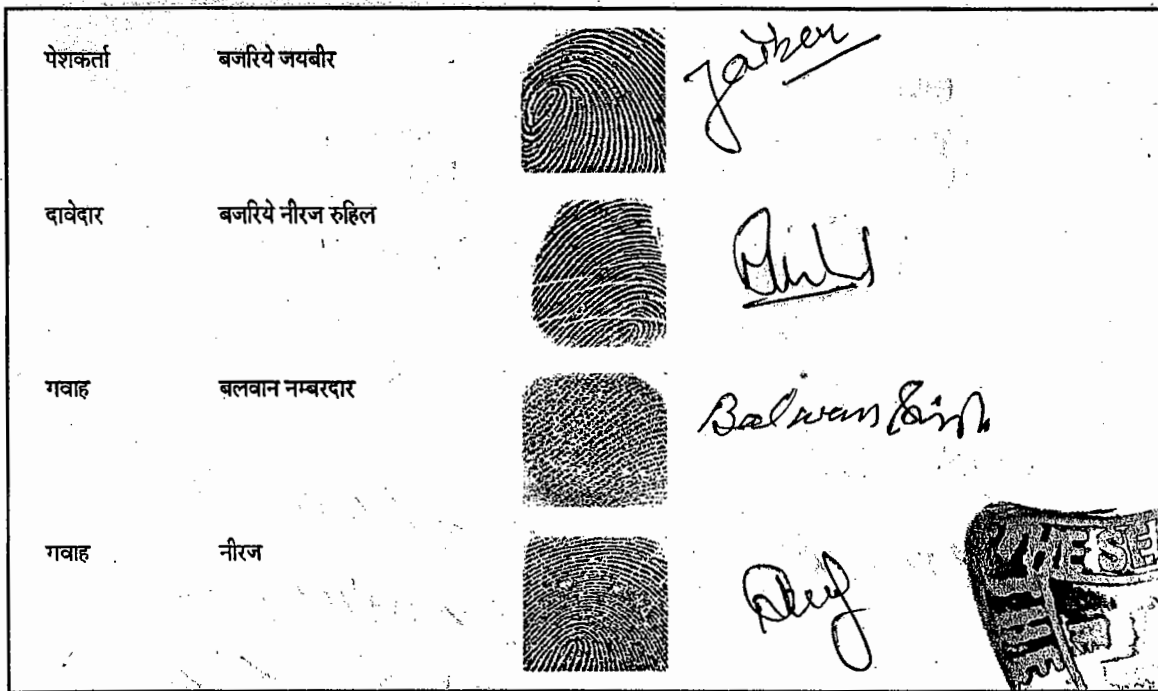 पेशकर्ता बजरिये जयबीर
दावेदार बजरिये नीरज रुहिल
गवाह बलवान नम्बरदार Balwan Singh
गवाह नीरज